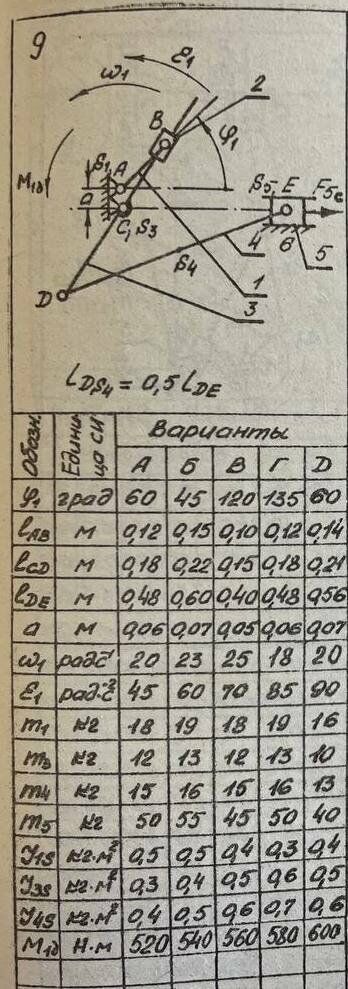 9
ε₁
ω₁
2
B
φ₁
M₁д
S₁
A
a
C, S₃
S₅
E
F₅c
6
5
4
S₄
1
3
D
l_DS₄ = 0,5 l_DE
Обозн.
Единица СИ
Варианты
А Б В Г Д
φ₁ град 60 45 120 135 60
l_AB м 0,12 0,15 0,10 0,12 0,14
l_CD м 0,18 0,22 0,15 0,18 0,21
l_DE м 0,48 0,60 0,40 0,48 0,56
a м 0,06 0,07 0,05 0,06 0,07
ω₁ рад·с⁻¹ 20 23 25 18 20
ε₁ рад·с⁻² 45 60 70 85 90
m₁ кг 18 19 18 19 16
m₃ кг 12 13 12 13 10
m₄ кг 15 16 15 16 13
m₅ кг 50 55 45 50 40
J₁s кг·м² 0,5 0,5 0,4 0,3 0,4
J₃s кг·м² 0,3 0,4 0,5 0,6 0,5
J₄s кг·м² 0,4 0,5 0,6 0,7 0,6
M₁д Н·м 520 540 560 580 600